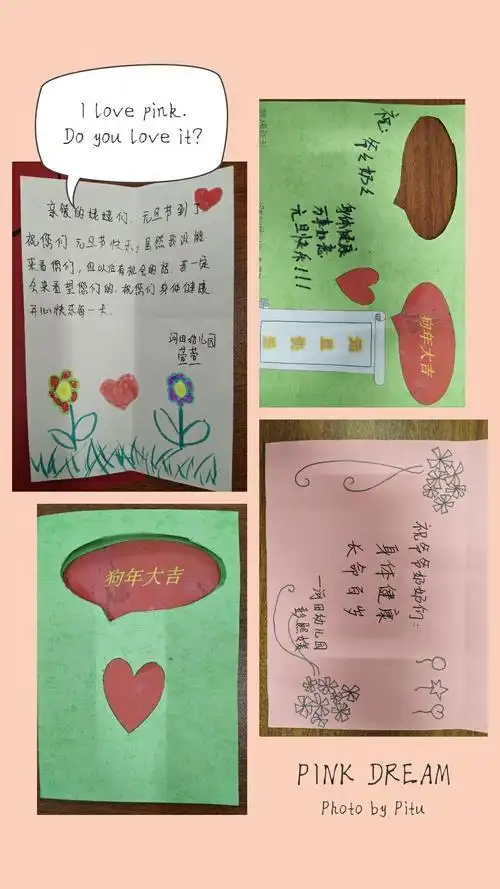 I love pink.
Do you love it?
亲爱的姥姥们，元旦节到了
祝你们元旦节快乐，虽然我没能
来看你们，但以后有机会的话，我一定
会来看望你们的，祝您们身体健康
开心快乐每一天
河田幼儿园
莹莹
祝：爷爷奶奶
身体健康
万事如意
元旦快乐!!!
狗年大吉
元旦快乐
狗年大吉
祝爷爷奶奶们：
身体健康
长命百岁
—河田幼儿园
彭照媛
PINK DREAM
Photo by Pitu